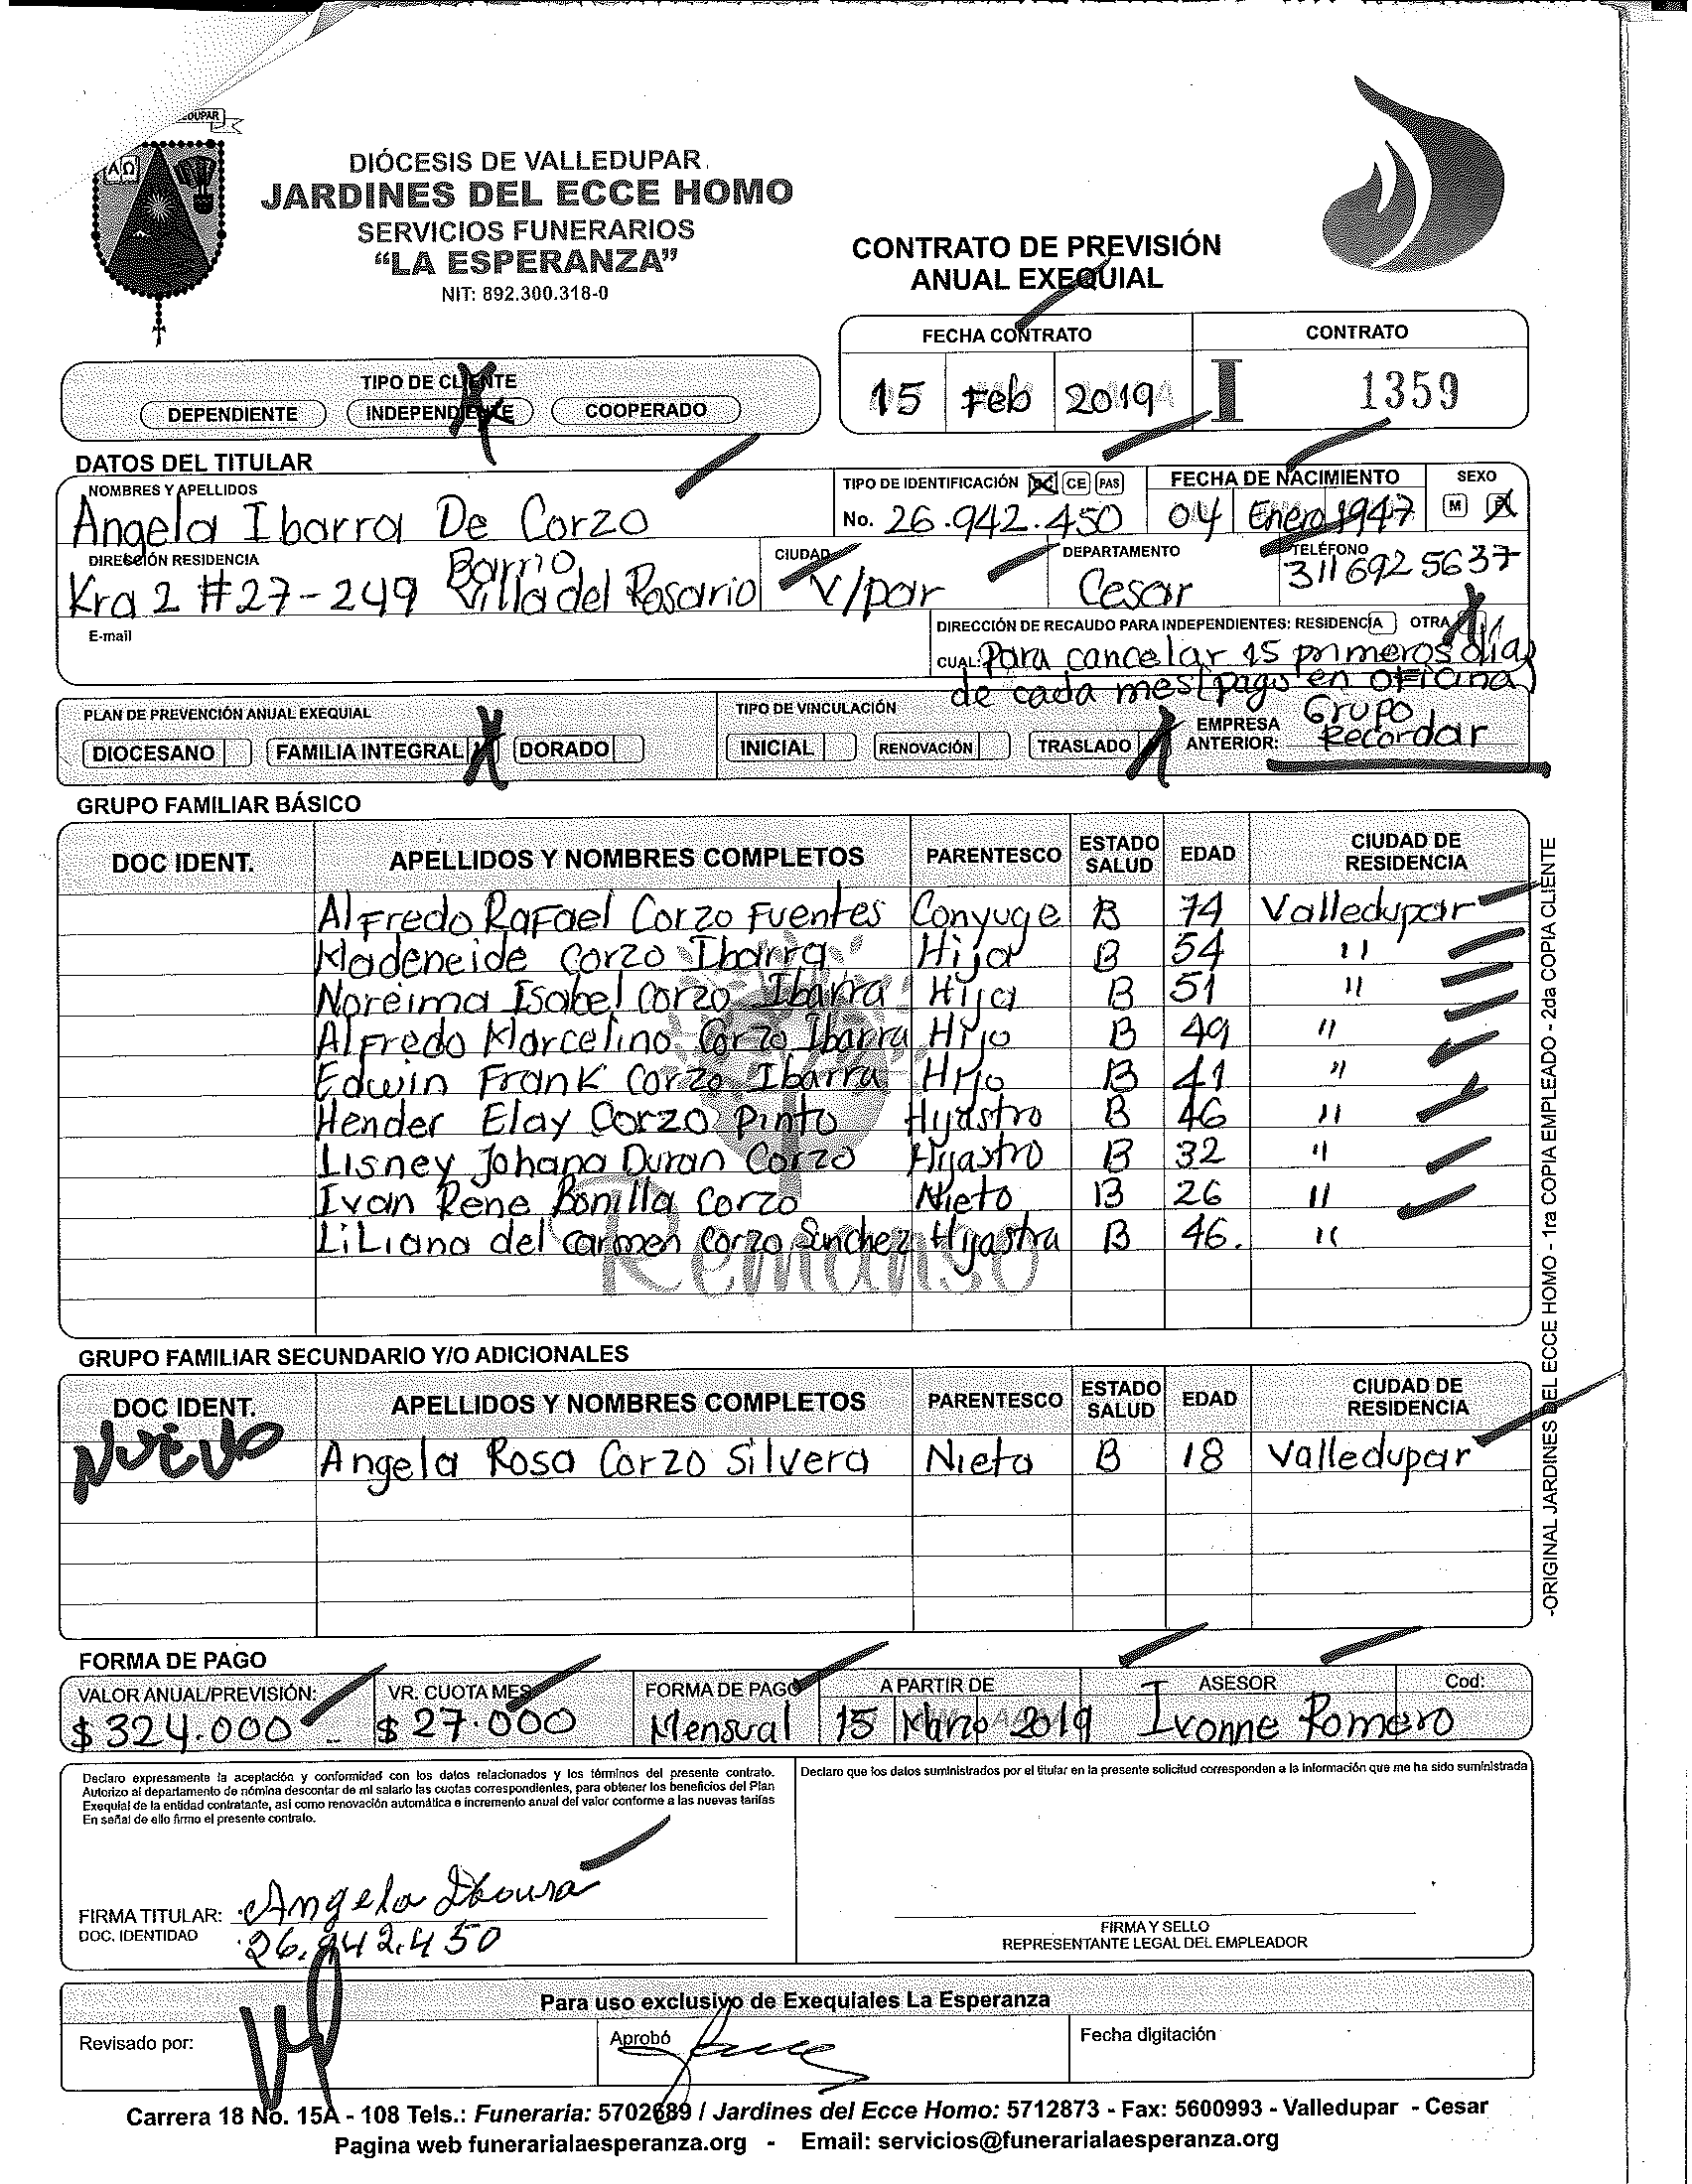 DUPAR
ΑΩ
DIÓCESIS DE VALLEDUPAR
JARDINES DEL ECCE HOMO
SERVICIOS FUNERARIOS
“LA ESPERANZA”
NIT: 892.300.318-0
CONTRATO DE PREVISIÓN
ANUAL EXEQUIAL
FECHA CONTRATO CONTRATO
15 Feb 2019 I 1359
TIPO DE CLIENTE
DEPENDIENTE INDEPENDIENTE X COOPERADO
DATOS DEL TITULAR
NOMBRES Y APELLIDOS
Angela Ibarra De Corzo
TIPO DE IDENTIFICACIÓN CC CE PAS
No. 26.942.450
FECHA DE NACIMIENTO
04 Enero 1947
SEXO
M F
DIRECCIÓN RESIDENCIA
Kra 2 #27-249 Barrio Villa del Rosario
CIUDAD
V/par
DEPARTAMENTO
Cesar
TELÉFONO
311 692 5637
E-mail
DIRECCIÓN DE RECAUDO PARA INDEPENDIENTES: RESIDENCIA OTRA X
CUAL: Para cancelar 15 primeros dias
de cada mes (pago en oficina)
PLAN DE PREVENCIÓN ANUAL EXEQUIAL
DIOCESANO FAMILIA INTEGRAL X DORADO
TIPO DE VINCULACIÓN
INICIAL RENOVACIÓN TRASLADO X
EMPRESA ANTERIOR: Grupo Recordar
GRUPO FAMILIAR BÁSICO
DOC IDENT. APELLIDOS Y NOMBRES COMPLETOS PARENTESCO ESTADO SALUD EDAD CIUDAD DE RESIDENCIA
Alfredo Rafael Corzo Fuentes Conyuge B 74 Valledupar
Madeneide Corzo Ibarra Hija B 54 "
Noreima Isabel Corzo Ibarra Hija B 51 "
Alfredo Marcelino Corzo Ibarra Hijo B 49 "
Edwin Frank Corzo Ibarra Hijo B 41 "
Hender Elay Corzo Pinto Hijastro B 46 "
Lisney Johana Duran Corzo Hijastro B 32 "
Ivan Rene Bonilla Corzo Nieto B 26 "
Liliana del Carmen Corzo Sanchez Hijastra B 46. "
Remanso
GRUPO FAMILIAR SECUNDARIO Y/O ADICIONALES
DOC IDENT. APELLIDOS Y NOMBRES COMPLETOS PARENTESCO ESTADO SALUD EDAD CIUDAD DE RESIDENCIA
NUEVO Angela Rosa Corzo Silvera Nieta B 18 Valledupar
-ORIGINAL JARDINES DEL ECCE HOMO - 1ra COPIA EMPLEADO - 2da COPIA CLIENTE
FORMA DE PAGO
VALOR ANUAL/PREVISIÓN: VR. CUOTA MES FORMA DE PAGO A PARTIR DE ASESOR Cod:
$ 324.000 $ 27.000 Mensual 15 Marzo 2019 Ivonne Romero
Declaro expresamente la aceptación y conformidad con los datos relacionados y los términos del presente contrato.
Autorizo al departamento de nómina descontar de mi salario las cuotas correspondientes, para obtener los beneficios del Plan
Exequial de la entidad contratante, así como renovación automática e incremento anual del valor conforme a las nuevas tarifas
En señal de ello firmo el presente contrato.
Declaro que los datos suministrados por el titular en la presente solicitud corresponden a la información que me ha sido suministrada
FIRMA TITULAR: Angela Ibarra
DOC. IDENTIDAD 26.942.450
FIRMA Y SELLO
REPRESENTANTE LEGAL DEL EMPLEADOR
Para uso exclusivo de Exequiales La Esperanza
Revisado por: Aprobó Fecha digitación
Carrera 18 No. 15A - 108 Tels.: Funeraria: 5702689 / Jardines del Ecce Homo: 5712873 - Fax: 5600993 - Valledupar - Cesar
Pagina web funerarialaesperanza.org - Email: servicios@funerarialaesperanza.org